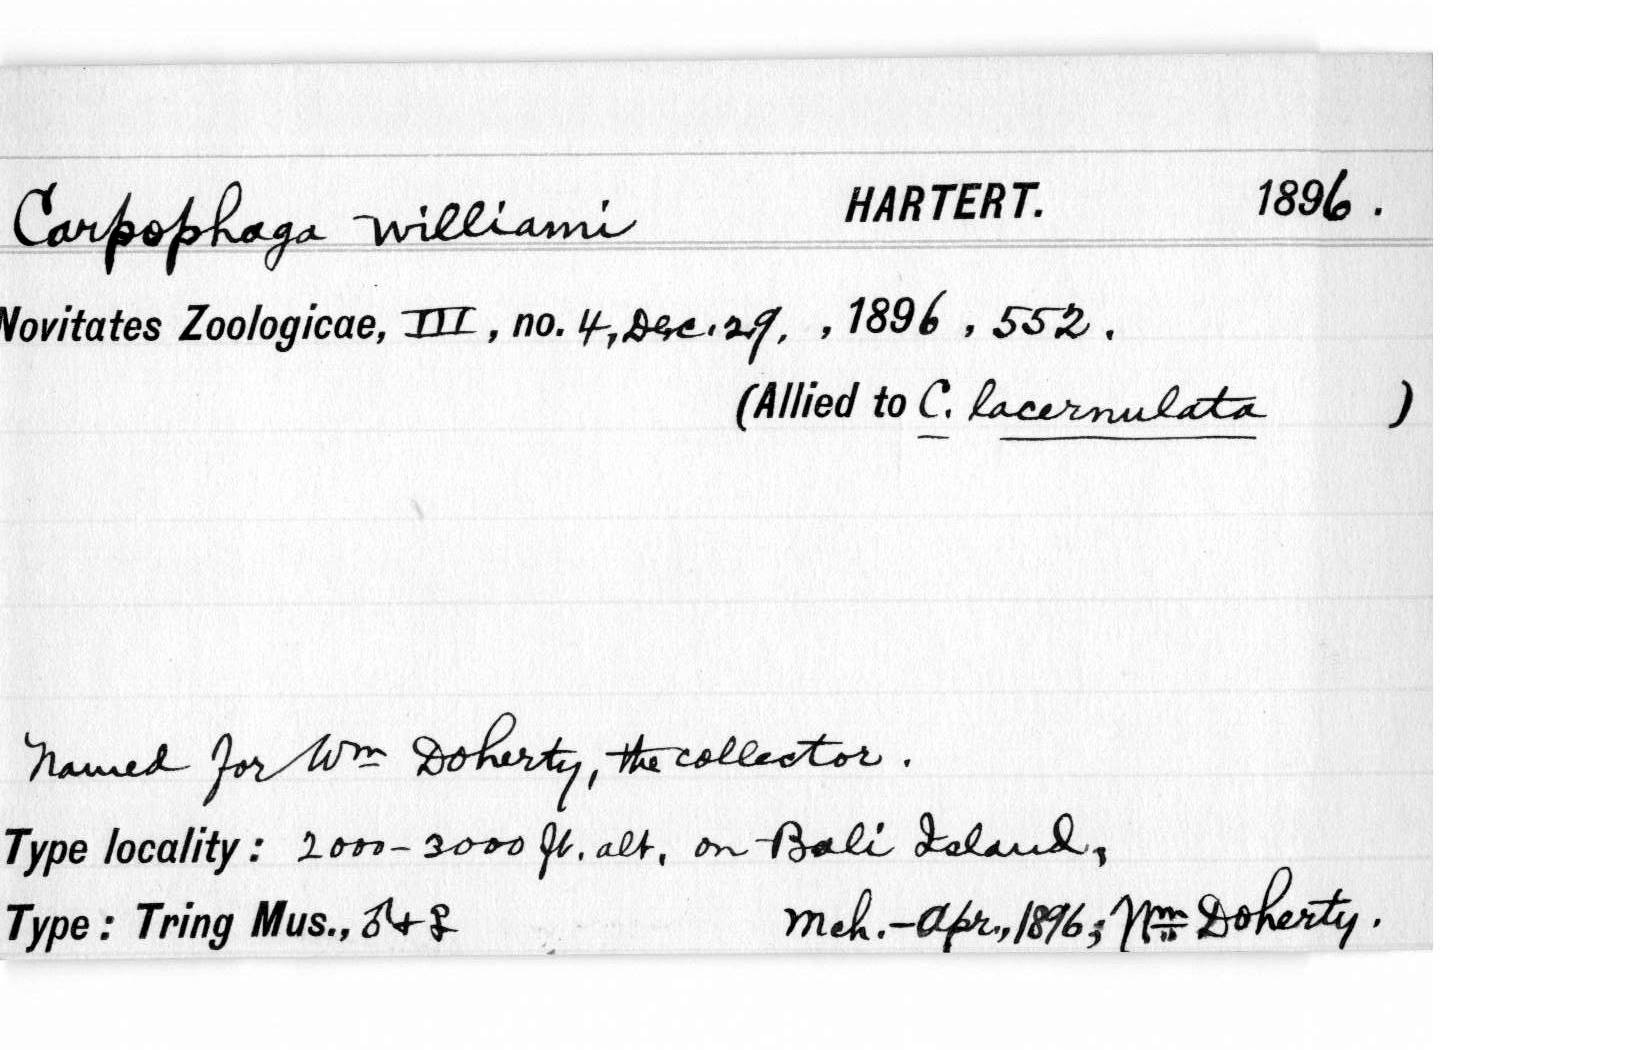 Carpophaga williami HARTERT. 1896.
Novitates Zoologicae, III, no. 4, Dec. 29, , 1896, 552.
(Allied to C. lacernulata )
Named for Wm Doherty, the collector.
Type locality: 2000-3000 ft. alt. on Bali Island,
Type: Tring Mus., ♂+♀ Mch.-Apr., 1896; Wm Doherty.